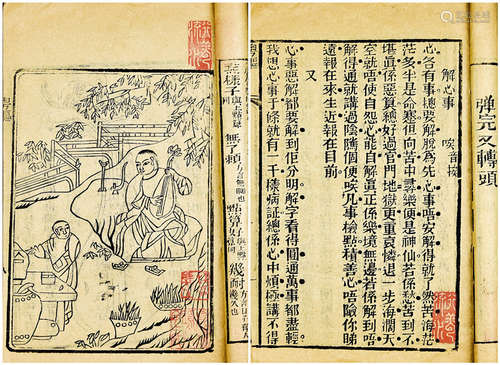 彈完又轉頭
解心事 唉音挨
心各有事總要解脫為先心事唔安解得就了然苦海茫
茫多半是命蹇但向苦中尋樂便是神仙若係愁苦到不
堪眞係惡算總好過官門地獄更重哀憐退一步海濶天
空就唔使自怨心能自解眞正係樂境無邊若係解到唔
解得通就講過陰隲個便唉凡事檢點積善心唔險你睇
遠報在來生近報在目前
又
心事惡解都要解到佢分明解字看得圓通萬事都盡輕
我想心事千條就有一千樣病症總係心中煩極講不得
點算好
幾耐